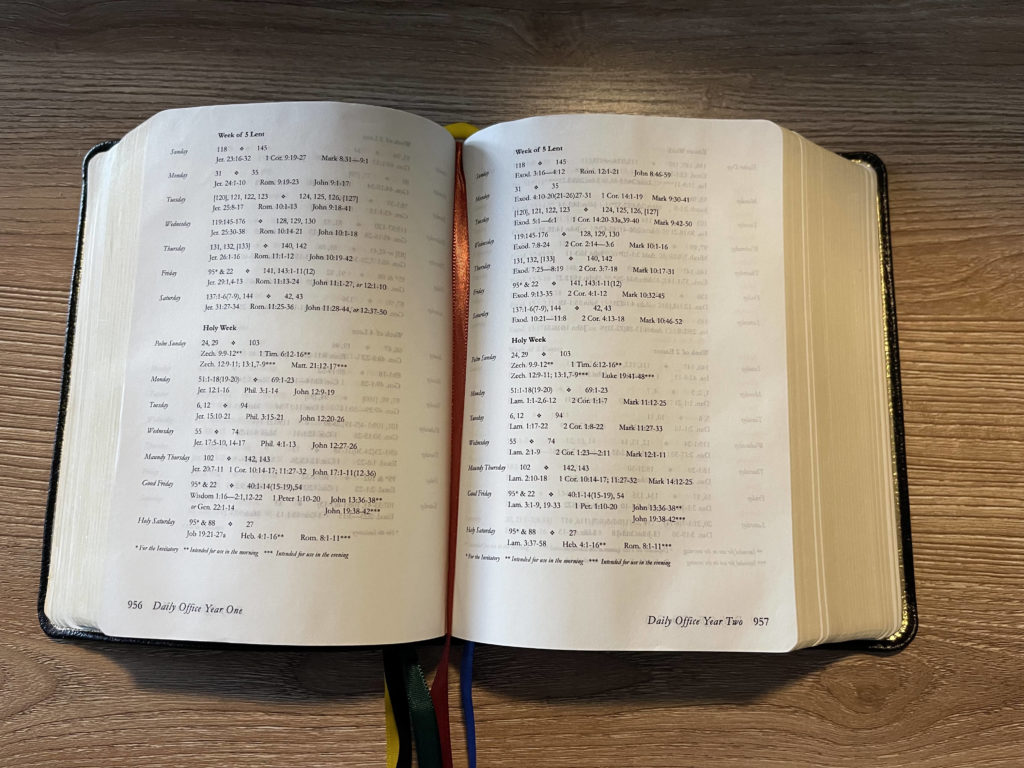 Week of 5 Lent
Sunday 118 ❖ 145
Jer. 23:16-32 1 Cor. 9:19-27 Mark 8:31—9:1
Monday 31 ❖ 35
Jer. 24:1-10 Rom. 9:19-23 John 9:1-17
Tuesday [120], 121, 122, 123 ❖ 124, 125, 126, [127]
Jer. 25:8-17 Rom. 10:1-13 John 9:18-41
Wednesday 119:145-176 ❖ 128, 129, 130
Jer. 25:30-38 Rom. 10:14-21 John 10:1-18
Thursday 131, 132, [133] ❖ 140, 142
Jer. 26:1-16 Rom. 11:1-12 John 10:19-42
Friday 95* & 22 ❖ 141, 143:1-11(12)
Jer. 29:1,4-13 Rom. 11:13-24 John 11:1-27, or 12:1-10
Saturday 137:1-6(7-9), 144 ❖ 42, 43
Jer. 31:27-34 Rom. 11:25-36 John 11:28-44, or 12:37-50
Holy Week
Palm Sunday 24, 29 ❖ 103
Zech. 9:9-12** 1 Tim. 6:12-16**
Zech. 12:9-11; 13:1,7-9*** Matt. 21:12-17***
Monday 51:1-18(19-20) ❖ 69:1-23
Jer. 12:1-16 Phil. 3:1-14 John 12:9-19
Tuesday 6, 12 ❖ 94
Jer. 15:10-21 Phil. 3:15-21 John 12:20-26
Wednesday 55 ❖ 74
Jer. 17:5-10, 14-17 Phil. 4:1-13 John 12:27-26
Maundy Thursday 102 ❖ 142, 143
Jer. 20:7-11 1 Cor. 10:14-17; 11:27-32 John 17:1-11(12-36)
Good Friday 95* & 22 ❖ 40:1-14(15-19),54
Wisdom 1:16—2:1,12-22 1 Peter 1:10-20 John 13:36-38**
or Gen. 22:1-14 John 19:38-42***
Holy Saturday 95* & 88 ❖ 27
Job 19:21-27a Heb. 4:1-16** Rom. 8:1-11***
* For the Invitatory ** Intended for use in the morning *** Intended for use in the evening
956 Daily Office Year One
Week of 5 Lent
Sunday 118 ❖ 145
Exod. 3:16—4:12 Rom. 12:1-21 John 8:46-59
Monday 31 ❖ 35
Exod. 4:10-20(21-26)27-31 1 Cor. 14:1-19 Mark 9:30-41
Tuesday [120], 121, 122, 123 ❖ 124, 125, 126, [127]
Exod. 5:1—6:1 1 Cor. 14:20-33a,39-40 Mark 9:42-50
Wednesday 119:145-176 ❖ 128, 129, 130
Exod. 7:8-24 2 Cor. 2:14—3:6 Mark 10:1-16
Thursday 131, 132, [133] ❖ 140, 142
Exod. 7:25—8:19 2 Cor. 3:7-18 Mark 10:17-31
Friday 95* & 22 ❖ 141, 143:1-11(12)
Exod. 9:13-35 2 Cor. 4:1-12 Mark 10:32-45
Saturday 137:1-6(7-9), 144 ❖ 42, 43
Exod. 10:21—11:8 2 Cor. 4:13-18 Mark 10:46-52
Holy Week
Palm Sunday 24, 29 ❖ 103
Zech. 9:9-12** 1 Tim. 6:12-16**
Zech. 12:9-11; 13:1,7-9*** Luke 19:41-48***
Monday 51:1-18(19-20) ❖ 69:1-23
Lam. 1:1-2,6-12 2 Cor. 1:1-7 Mark 11:12-25
Tuesday 6, 12 ❖ 94
Lam. 1:17-22 2 Cor. 1:8-22 Mark 11:27-33
Wednesday 55 ❖ 74
Lam. 2:1-9 2 Cor. 1:23—2:11 Mark 12:1-11
Maundy Thursday 102 ❖ 142, 143
Lam. 2:10-18 1 Cor. 10:14-17; 11:27-32 Mark 14:12-25
Good Friday 95* & 22 ❖ 40:1-14(15-19), 54
Lam. 3:1-9, 19-33 1 Pet. 1:10-20 John 13:36-38**
John 19:38-42***
Holy Saturday 95* & 88 ❖ 27
Lam. 3:37-58 Heb. 4:1-16** Rom. 8:1-11***
* For the Invitatory ** Intended for use in the morning *** Intended for use in the evening
Daily Office Year Two 957